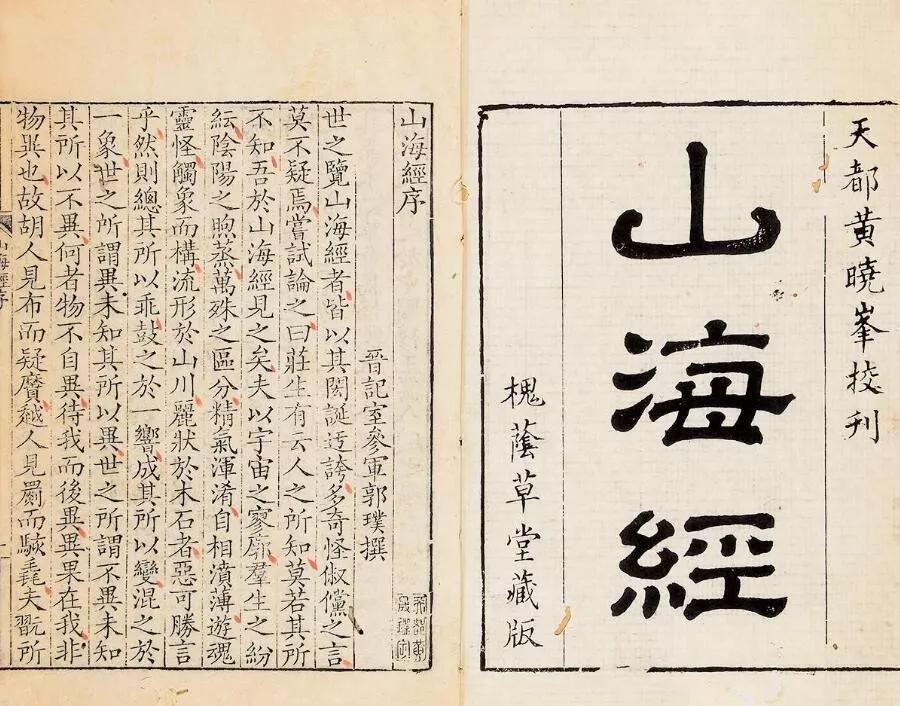 天都黄曉峯挍刋
山海經
槐蔭草堂藏版
山海經序
晉記室參軍郭璞撰
世之覽山海經者皆以其閎誕迂誇多奇怪俶儻之言
莫不疑焉嘗試論之曰莊生有云人之所知莫若其所
不知吾於山海經見之矣夫以宇宙之寥廓羣生之紛
紜陰陽之喣蒸萬殊之區分精氣渾淆自相濆薄遊魂
靈怪觸象而構流形於山川麗狀於木石者惡可勝言
乎然則總其所以乖鼓之於一響成其所以變混之於
一象世之所謂異未知其所以異世之所謂不異未知
其所以不異何者物不自異待我而後異異果在我非
物異也故胡人見布而疑黂越人見罽而駭毳夫翫所
山海經序